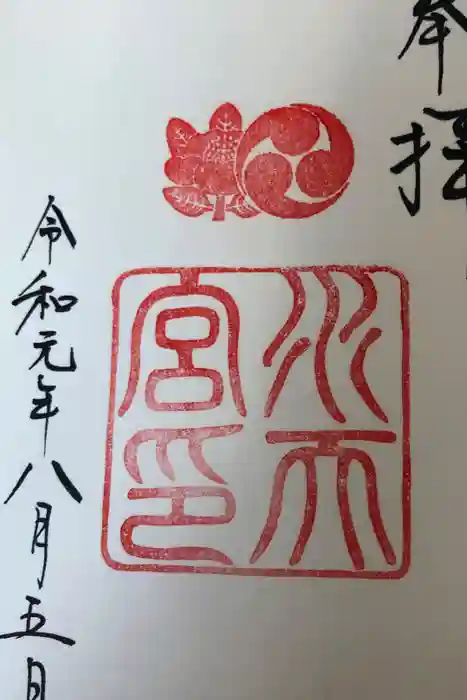 奉拝
水天
宮印
令和元年八月五日